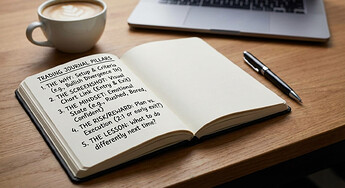 TRADING JOURNAL PILLARS
1. THE WHY: Setup & Criteria
(e.g., Bullish Divergence 1H)
2. THE SCREENSHOT: Visual
Chart Link (Entry & Exit)
3. THE MINDSET: Emotional
State (e.g., Rushed, Bored,
Confident)
4. THE RISK/REWARD: Plan vs.
Execution (2:1 or early exit?)
5. THE LESSON: What to do
differently next time?